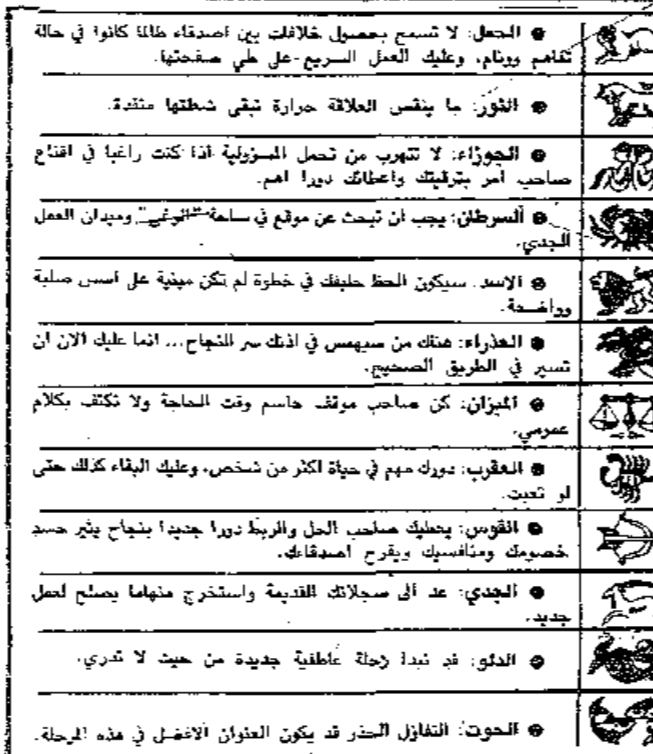 ● الحمل: لا تسمح بحصول خلافات بين اصدقاء طالما كانوا في حالة
تفاهم ووئام، وعليك العمل السريع على طي صفحتها.
● الثور: ما ينقص العلاقة حرارة تبقي شعلتها متقدة.
● الجوزاء: لا تتهرب من تحمل المسؤولية اذا كنت راغبا في اقناع
صاحب امر بترقيتك واعطائك دورا اهم.
● السرطان: يجب ان تبحث عن موقع في ساحة "الوغى" وميدان العمل
الجدي.
● الاسد: سيكون الحظ حليفك في خطوة لم تكن مبنية على اسس صلبة
وواضحة.
● العذراء: هناك من سيهمس في اذنك سر النجاح... انما عليك الان ان
تسير في الطريق الصحيح.
● الميزان: كن صاحب موقف حاسم وقت الحاجة ولا تكتف بكلام
عمومي.
● العقرب: دورك مهم في حياة اكثر من شخص، وعليك البقاء كذلك حتى
لو تعبت.
● القوس: يعطيك صاحب الحل والربط دورا جديدا بنجاح يثير حسد
خصومك ومنافسيك ويفرح اصدقاءك.
● الجدي: عد الى سجلاتك القديمة واستخرج منها ما يصلح لعمل
جديد.
● الدلو: قد تبدأ رحلة عاطفية جديدة من حيث لا تدري.
● الحوت: التفاؤل الحذر قد يكون العنوان الافضل في هذه المرحلة.